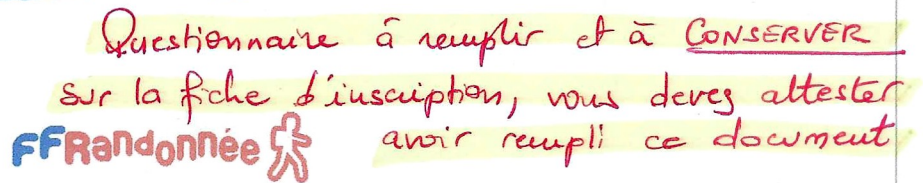 Questionnaire à remplir et à CONSERVER
sur la fiche d'inscription, vous devez attester
avoir rempli ce document
FFRandonnée